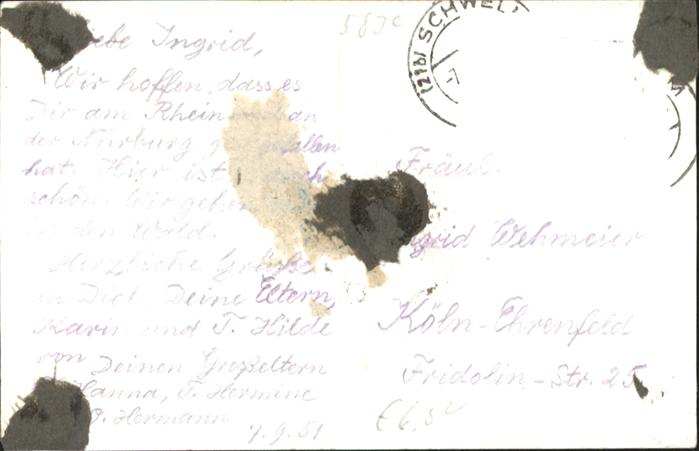 Liebe Ingrid,
Wir hoffen, dass es
Dir am Rhein und an
der Nürburg gefallen
hat. Hier ist auch
schön. Wir gehen
in den Wald.
Herzliche Grüße
an Dich, Deine Eltern,
Karin und T. Hilde
von Deinen Großeltern
Hanna, T. Hermine
O. Hermann
7.9.51
583c
(21b) SCHWEL
Fräul.
Ingrid Wehmeier
Köln-Ehrenfeld
Fridolin-Str. 25
€ 6,5